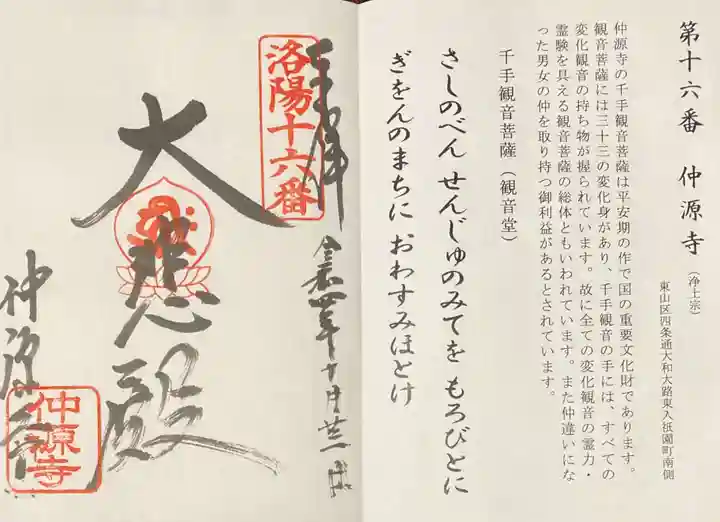 第十六番 仲源寺(浄土宗)
東山区四条通大和大路東入祇園町南側
仲源寺の千手観音菩薩は平安期の作で国の重要文化財であります。
観音菩薩には三十三の変化身があり、千手観音の手には、すべての
変化観音の持ち物が握られています。故に全ての変化観音の霊力・
霊験を具える観音菩薩の総体ともいわれています。また仲違いにな
った男女の仲を取り持つ御利益があるとされています。
千手観音菩薩(観音堂)
さしのべん せんじゅのみてを もろびとに
ぎをんのまちに おわすみほとけ
奉拝
令和四年十月廿二日
洛陽十六番
大悲殿
仲源寺
仲源寺